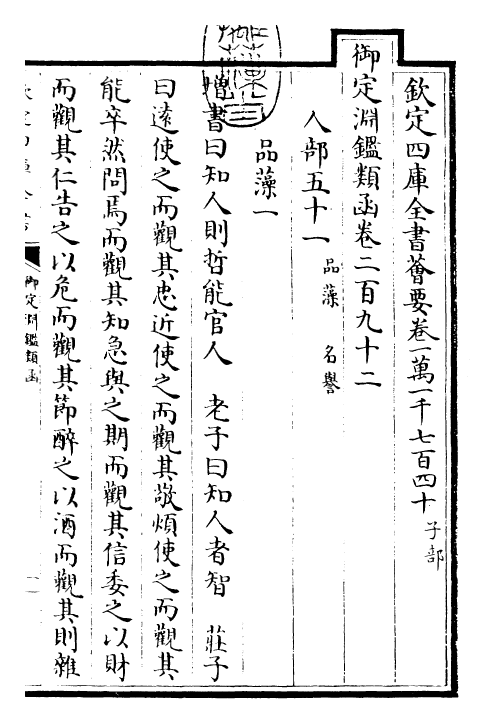 欽定四庫全書薈要卷一萬一千七百四十 子部
御定淵鑑類函卷二百九十二
人部五十一 品藻 名譽
品藻一
增書曰知人則哲能官人 老子曰知人者智 莊子
曰遠使之而觀其忠近使之而觀其敬煩使之而觀其
能卒然問焉而觀其知急與之期而觀其信委之以財
而觀其仁告之以危而觀其節醉之以酒而觀其則雜
御定淵鑑類函
一